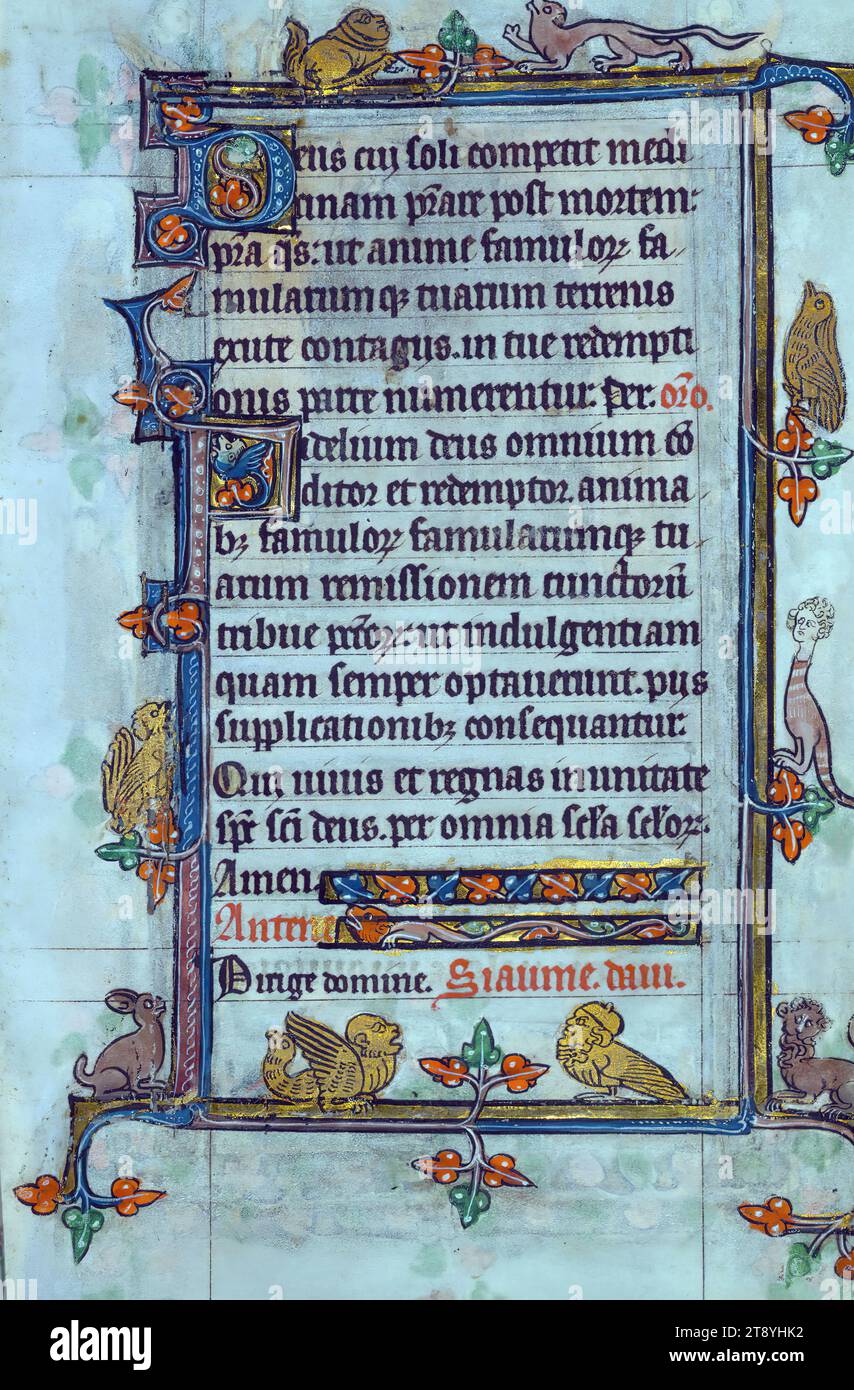 Deus cuj soli competit medi
cinam p̄rare post mortem:
p̄ra q̄s: ut anime famulorꝝ fa
mularumqꝫ tuarum terrenis
exute contagijs. in tue redempti
onis parte numerentur. Per. or̄o.
Fidelium deus omnium cō
ditor et redemptor. anima
bꝫ famulorꝝ famularumqꝫ tu
arum remissionem cunctorū
tribue pct̄orꝝ: ut indulgentiam
quam semper optauerunt. pijs
supplicationibꝫ consequantur.
Quj viuis et regnas in unitate
sp̄c sc̄i deus. per omnia sc̄la sc̄lorꝝ.
Amen.
Dirige domine.
alamy
Image ID: 2T8YHK2
www.alamy.com